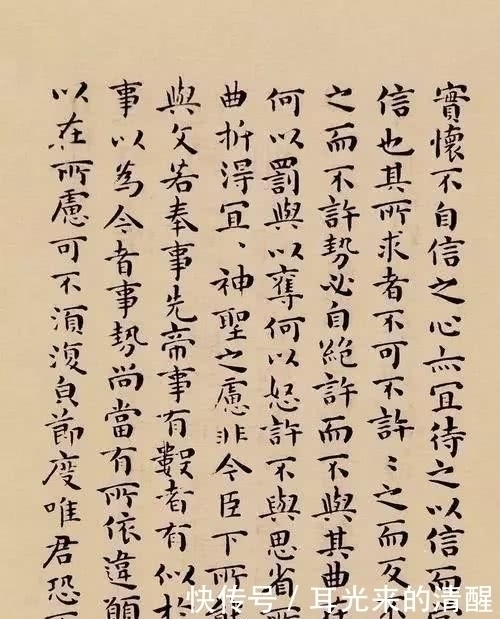 實懷不自信之心亦冝待之以信而
信也其所求者不可不許〻之而反
之而不許勢必自絕許而不與其曲在
何以罰與以奪何以怒許不與思省所
曲折得冝〻神聖之慮非今臣下所
與文若奉事先帝事有數者有似於
事以為今者事勢尚當有所依違願
以在所慮可不須復皃節度唯君恐不
快传号 / 耳光来的清醒